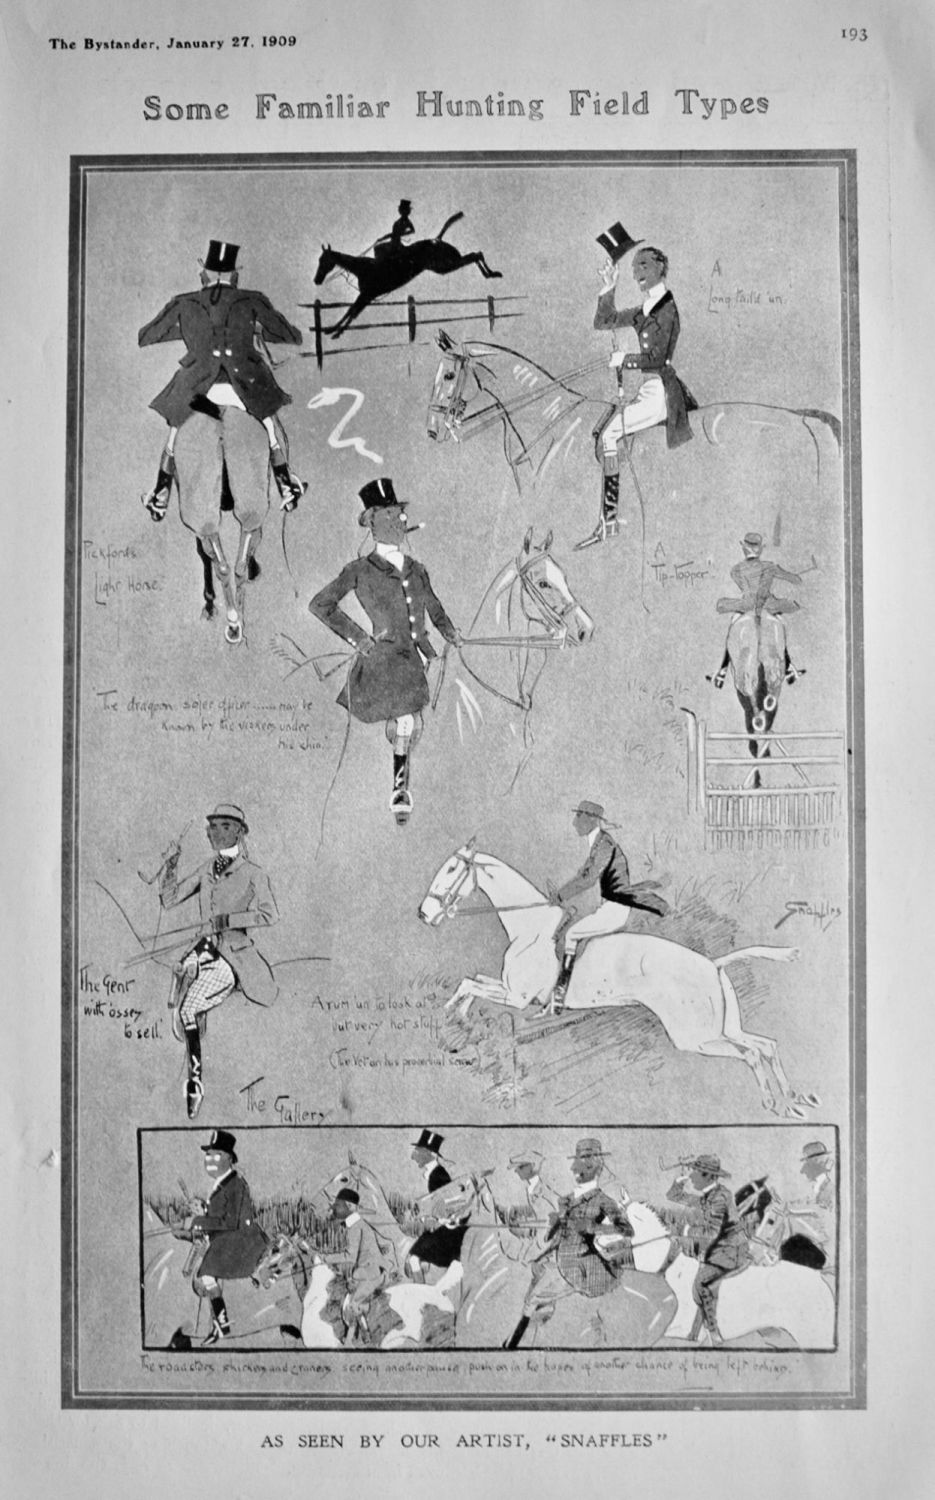 The Bystander, January 27, 1909
193
Some Familiar Hunting Field Types
A
"Long tail'd 'un"
"Pickfords
Light Horse."
A
"Tip-Topper".
"The dragoon sojer officer ...... may be
known by the viskers under
his chin."
Snaffles
"The Gent
with 'osses
to sell."
A rum 'un to look at
but very hot stuff
(The Vet on his proverbial screw)
The Gallery
"The roadsters, shirkers and craners, seeing another pause, push on in the hopes of another chance of being left behind."
AS SEEN BY OUR ARTIST, "SNAFFLES"